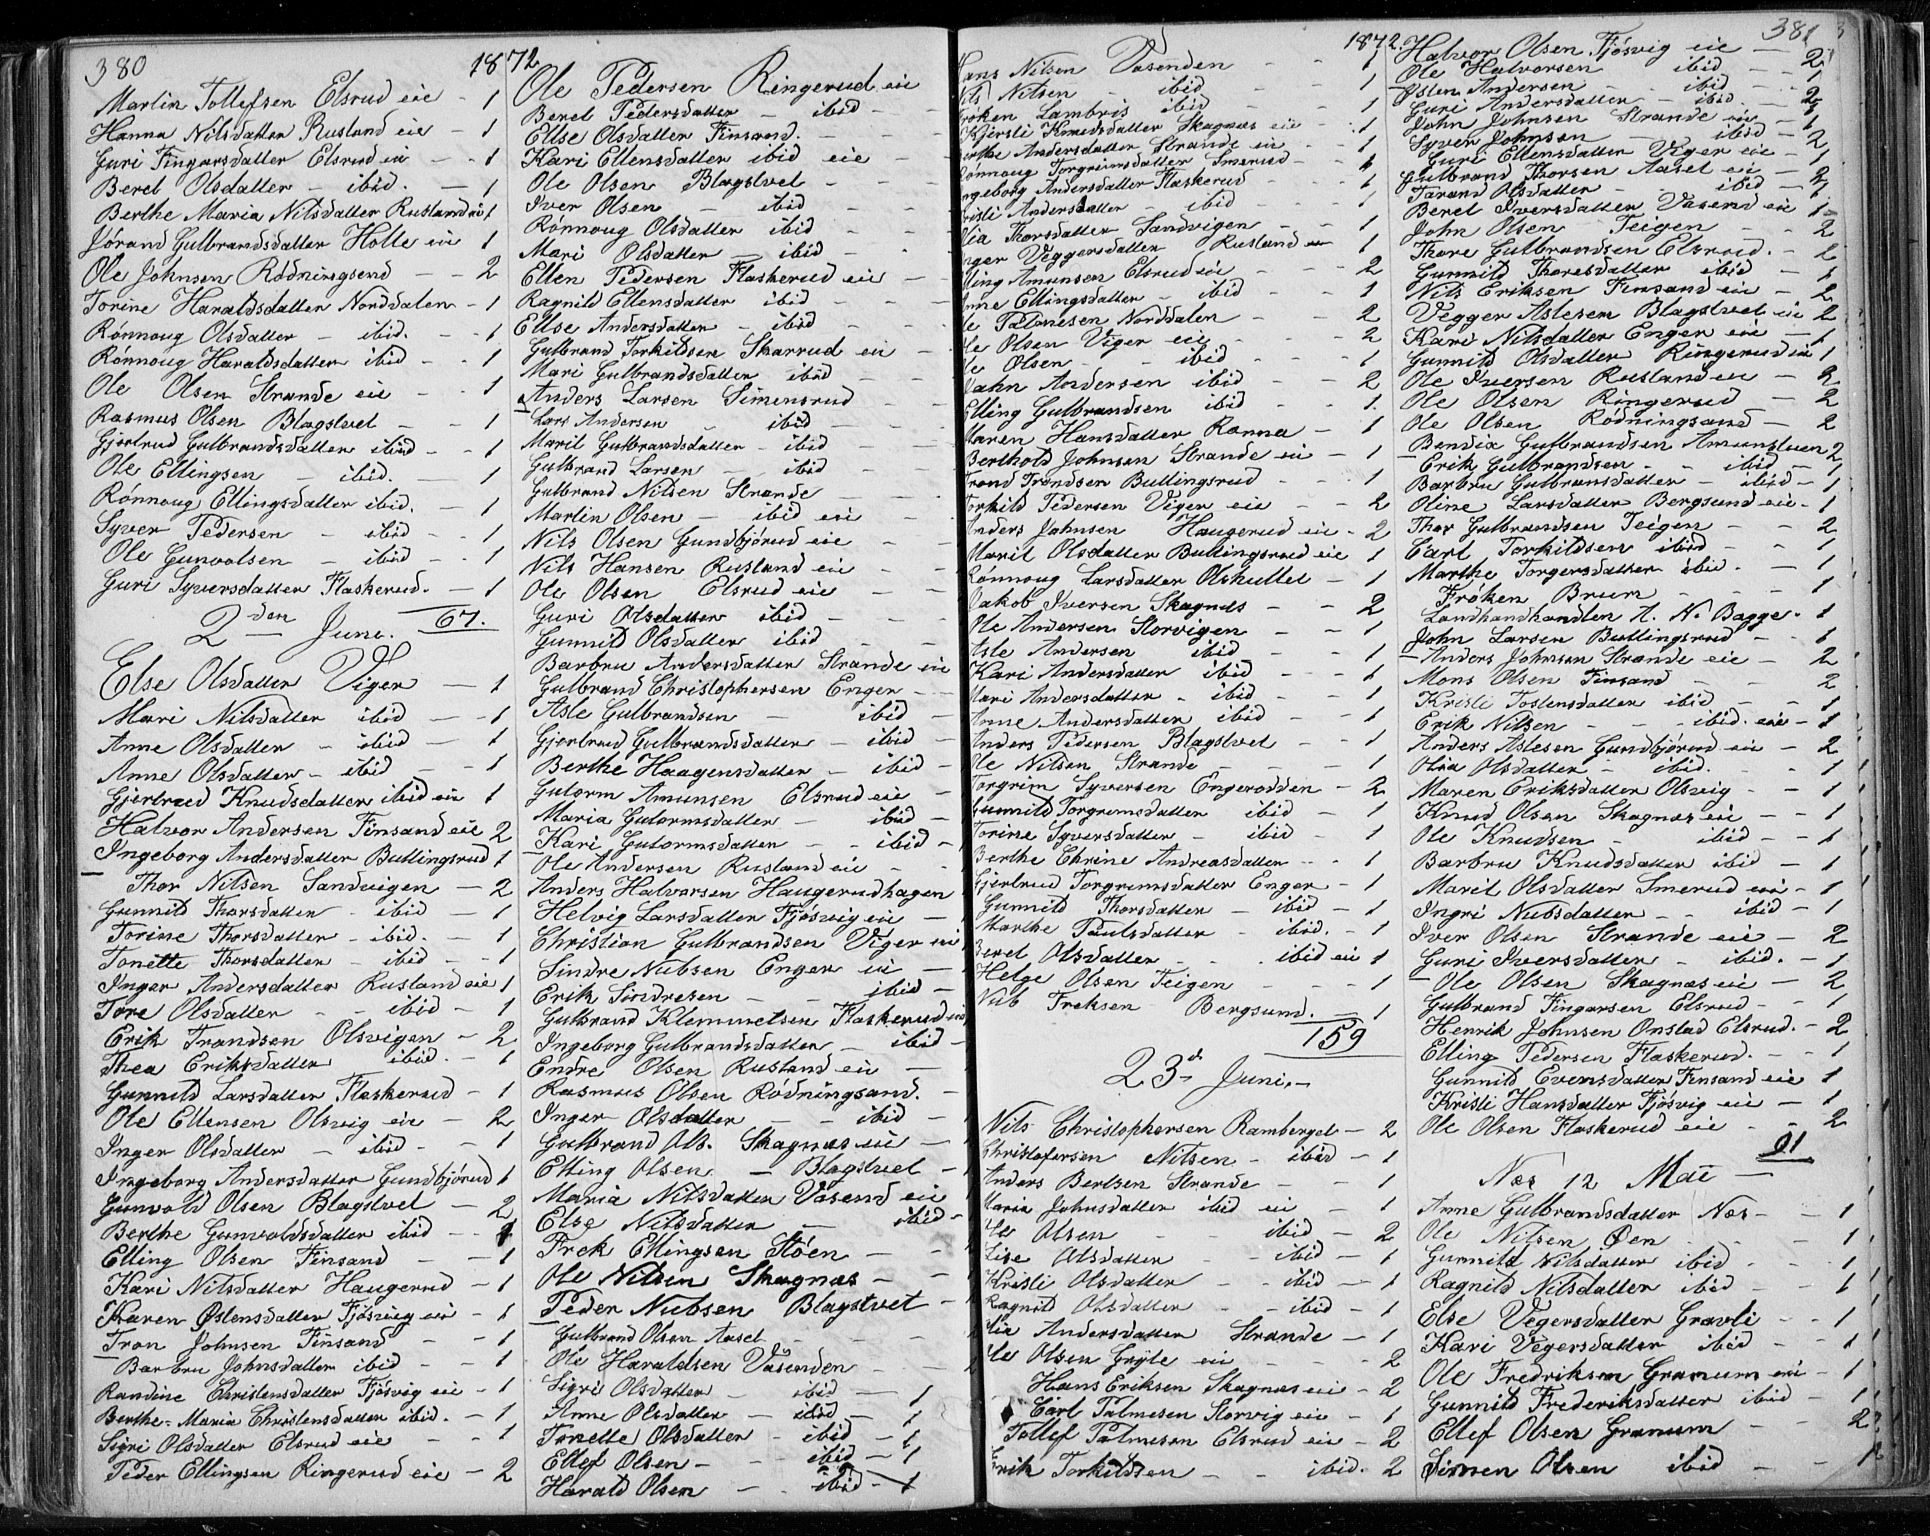 380
1872
Martin Tollefsen Elsrud eie - 1
Hanna Nilsdatter Rusland eie - 1
Guri Fingarsdatter Elsrud eie - - 1
Beret Olsdatter - ibid. - 1
Berthe Maria Nilsdatter Rusland eie 1
Jørand Gulbrandsdatter Holte eie 1
Ole Johnsen Rødningsend - - 2
Torine Haraldsdatter Norddalen - 1
Rønnoug Olsdatter - ibid. - 1
Rønnoug Haraldsdatter ibid - - 1
Ole Olsen Strande eie - - 1
Rasmus Olsen Blagstvet - - 1
Gjertrud Gulbrandsdatter ibid - - 1
Ole Ellingsen - ibid. - 1
Rønnoug Ellingsdatter ibid. - 1
Syver Pedersen - ibid - 1
Ole Gunvolsen - ibid - - 1
Guri Syversdatter Flaskerud. - 1
67.
2den Juni.
Else Olsdatter Viger - 1
Mari Nilsdatter ibid - - 1
Anne Olsdatter - ibid - 1
Anne Olsdatter - ibid - - 1
Gjertrud Knudsdatter ibid eie 1
Halvor Andersen Finsand eie 2
Ingeborg Andersdatter Bullingsrud 1
Thor Nilsen Sandvigen - 2
Gunnild Thorsdatter - ibid - 1
Torine Thorsdatter - ibid. - 1
Tonette Thorsdatter - ibid - - 1
Inger Andersdatter Rusland eie 1
Tore Olsdatter - - ibid - 1
Erik Trandsen Olsvigen - 2
Thea Eriksdatter ibid. - 1
Gunnild Larsdatter Flaskerud - 1
Ole Ellensen Olsvig eie - - 2
Inger Olsdatter - ibid - 1
Ingeborg Andersdatter Gundbjørud 1
Gunvold Olsen Blagstvet - 2
Berthe Gunvoldsdatter ibid - - 1
Elling Olsen Finsand - - 1
Kari Nilsdatter Haugerud - 1
Karen Østensdatter Fjøsvig eie - 1
Tron Johnsen Finsand - - 1
Barbru Johnsdatter ibid - - 1
Randine Christensdatter Fjøsvig eie - 1
Berthe-Maria Christensdatter ibid. - 1
Sigri Olsdatter Elsrud eie - - 1
Peder Ellingsen Ringerud eie - 2
Ole Pedersen Ringerud eie
Beret Pedersdatter - ibid -
Ellse Olsdatter Finsand. - -
Kari Ellensdatter ibid eie - -
Ole Olsen Blagstvet - -
Iver Olsen - ibid - -
Rønnoug Olsdatter ibid - -
Mari Olsdatter - ibid -
Ellen Pedersen Flaskerud eie -
Ragnild Ellensdatter ibid - -
Ellse Andersdatter - ibid -
Gulbrand Torkildsen Skarrud eie
Mari Gulbrandsdatter ibid -
Anders Larsen Simensrud - -
Lars Andersen - ibid -
Marit Gulbrandsdatter - ibid
Gulbrand Larsen - ibid -
Gulbrand Nilsen Strande -
Martin Olsen - ibid eie
Nils Olsen Gundbjørud eie - -
Nils Hansen Rusland eie - -
Ole Olsen Elsrud eie - -
Guri Olsdatter ibid - - -
Gunnild Olsdatter ibid - -
Barbru Andersdatter Strande eie
Gulbrand Christophersen Enger - -
Asle Gulbrandsen - ibid -
Gjertrud Gulbrandsdatter - ibid -
Berthe Haagensdatter - ibid -
Gutorm Amunsen Elsrud eie -
Maria Gutormsdatter - ibid -
Kari Gutormsdatter - - ibid -
Ole Andersen Rusland eie - -
Anders Halvorsen Haugerudhagen
Helvig Larsdatter Fjøsvig eie -
Christian Gulbrandsen Viger eie
Sindre Nubsen Enger eie -
Erik Sindresen - - ibid -
Gulbrand Klemmetsen Flaskerud eie
Ingeborg Gulbrandsdatter - ibid -
Endre Olsen Rusland eie - -
Rasmus Olsen Rødningsand. -
Inger Olsdatter - - ibid -
Gulbrand Ols. Skagnæs eie -
Elling Olsen - Blagstvet -
Maria Nilsdatter Vasend eie
Else Nilsdatter - ibid -
Frek Ellingsen Støen - -
Ole Nilsen Skagnæs - -
Peder Nubsen Blagstvet -
Gulbrand Olsen Aasel - - -
Ole Haraldsen Vasenden
Sigri Olsdatter - ibid - 1
Anne Olsdatter - ibid - 1
Tonette Olsdatter - ibid - 1
Ellef Olsen - - ibid - 1
Harald Olsen - - ibid - 1
381
1872.
Hans Nilsen Vasenden - - 1
Nils Nilsen - ibid - - 1
Frøken Lambris ibid - - 1
Kjersti Knudsdatter Skagnæs eie - 1
Berthe Andersdatter Strande eie - - 1
Rønnoug Torgrimsdatter Smerud - - 1
Ingeborg Andersdatter Flaskerud - - 1
Kristi Andersdatter - ibid - - 1
Olia Thorsdatter Sandvigen - - 1
Inger Veggersdatter Rusland eie 1
Elling Amunsen Elsrud eie - - 2
Anne Ellingsdatter - ibid - - 1
Ole Palmesen Norddalen - - 2
Ole Olsen Viger eie - - - 2
Ole Olsen - - ibid - - 1
Vahn Andersen ibid - - 2
Elling Gulbrandsen ibid - - 1.
Maren Hansdatter Ranna - 1
Berthold Johnsen Strande eie - 1
Trond Trondsen Bullingsrud - - 1
Torkild Pedersen Viger eie - - 2
Anders Johnsen Haugerud eie - 2
Marit Olsdatter Bullingsrud eie 1
Rønnoug Larsdatter Olshullet - 1
Jakob Iversen Skagnæs - - 2
Ole Andersen Storvigen - - 1
Asle Andersen ibid - - 1
Kari Andersdatter ibid - - - 1
Mari Andersdatter - ibid - - 1
Anne Andersdatter - ibid - - 1
Anders Pedersen Blagstvet - - 1
Ole Nilsen Strande - - - 1
Torgrim Syversen Engerodden - 2
Gunnild Torgrimsdatter ibid - 1
Torine Syversdatter - ibid - 1
Berthe Chrine Andreasdatter - - 1
Gjertrud Torgrimsdatter Enger - 1
Gunnild Thorsdatter - ibid - 1
Marthe Paulsdatter - ibid. - 1
Beret Olsdatter - - - ibid eie 1
Helge Olsen Teigen - - - 1
Nub Freksen Bergsund. - 1
159
23d Juni. -
Nils Christophersen Ramberget - 2
Christofersen Nilsen - ibid - 1
Anders Bertsen Strande - - 1
Maria Johnsdatter ibid eie - 1
Ole Olsen - - ibid - 2
Lise Olsdatter - ibid - 1
Kristi Olsdatter - - ibid - 1
Ragnild Olsdatter - - ibid - 1
Olia Andersdatter Strande - 1
Ole Olsen Gryte eie - - 2
Hans Eriksen Skagnæs eie - 2
Carl Palmesen Storvig eie - 1
Tollef Palmesen Elsrud eie - 2
Erik Torkildsen - - ibid. 2
Halvor Olsen Fjøsvig eie - 2
Ole Halvorsen ibid - - 1
Østen Andersen - ibid - - 2
Guri Andersdatter - ibid - 1
John Johnsen Strande eie - 1
Syver Johnsen - ibid - 2
Guri Ellensdatter Viger eie - 1
Gulbrand Thorsen Aasel eie - 2
Tarand Olsdatter - - ibid - 1
Beret Iversdatter Vasend eie 1
John Olsen Teigen - - 2
Thore Gulbrandsen Elsrud. - 2
Gunnild Thoresdatter ibid - 1
Nils Eriksen Finsand eie - 2
Vegger Aslesen Blagstvet eie 2
Kari Nilsdatter Enger eie - 1
Gunnild Olsdatter Ringerud eie 1
Ole Iversen Rusland eie - 2
Ole Olsen Ringerud - 2
Ole Olsen Rødningsand - 2
Bendia Gulbrandsen Amunstuen 2
Erik Gulbrandsen - - ibid - 1
Barbru Gulbransdatter - ibid - 1
Oline Larsdatter Bergsund eie - 1
Thor Gulbrandsen Teigen - - 2
Carl Torkildsen ibid - - 1
Marthe Torgersdatter ibid. - 1
Frøken Brum - - - 1
Landhandhandlen A. N. Bagge. 1
John Larsen Bullingsrud - - 1
Anders Johnsen Strande eie - 2
Mons Olsen Finsand - - 2
Kristi Tostensdatter ibid - - 1
Erik Nilsen - - - ibid. eie - 1
Anders Aslesen Gundbjørud eie - 2
Olia Olsdatter - ibid. - - 1
Maren Eriksdatter Olsvig - - 1
Knud Olsen Skagnæs eie - - 1
Ole Knudsen - ibid - - 1
Barbru Knudsdatter ibid - 1
Marit Olsdatter Smerud eie - 1
Ingri Nubsdatter - - ibid - 1
Iver Olsen Strande eie - 2
Guri Iversdatter - ibid. - 1
Ole Olsen Skagnæs eie - 2
Gulbrand Fingarsen Elsrud - - 1
Henrik Johnsen Onstad Elsrud. - 2
Elling Pedersen Flaskerud. - - 1
Gunnild Evensdatter Finsand eie 1
Kristi Hansdatter Fjøsvig eie - 1
Ole Olsen Flaskerud eie - - 2
91
Næs 12 Mai -
Anne Gulbrandsdatter Næs - - 1
Ole Nilsen Øen - - 1
Gunnild Nilsdatter ibid - - 1
Ragnild Nilsdatter ibid - 1
Else Vegersdatter Gravli - - 1
Kari Vegersdatter ibid - 1
Ole Fredriksen Granum eie - 1
Gunnild Frederiksdatter ibid 1
Ellef Olsen Granum - 2
Simen Olsen ibid - - 1